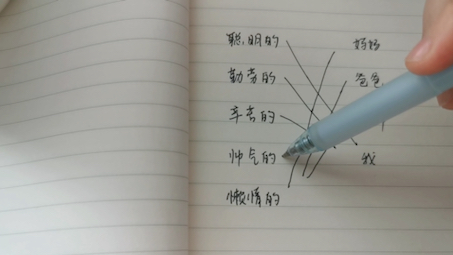 聪明的 妈妈
勤劳的 爸爸
辛苦的
帅气的 我
懒惰的